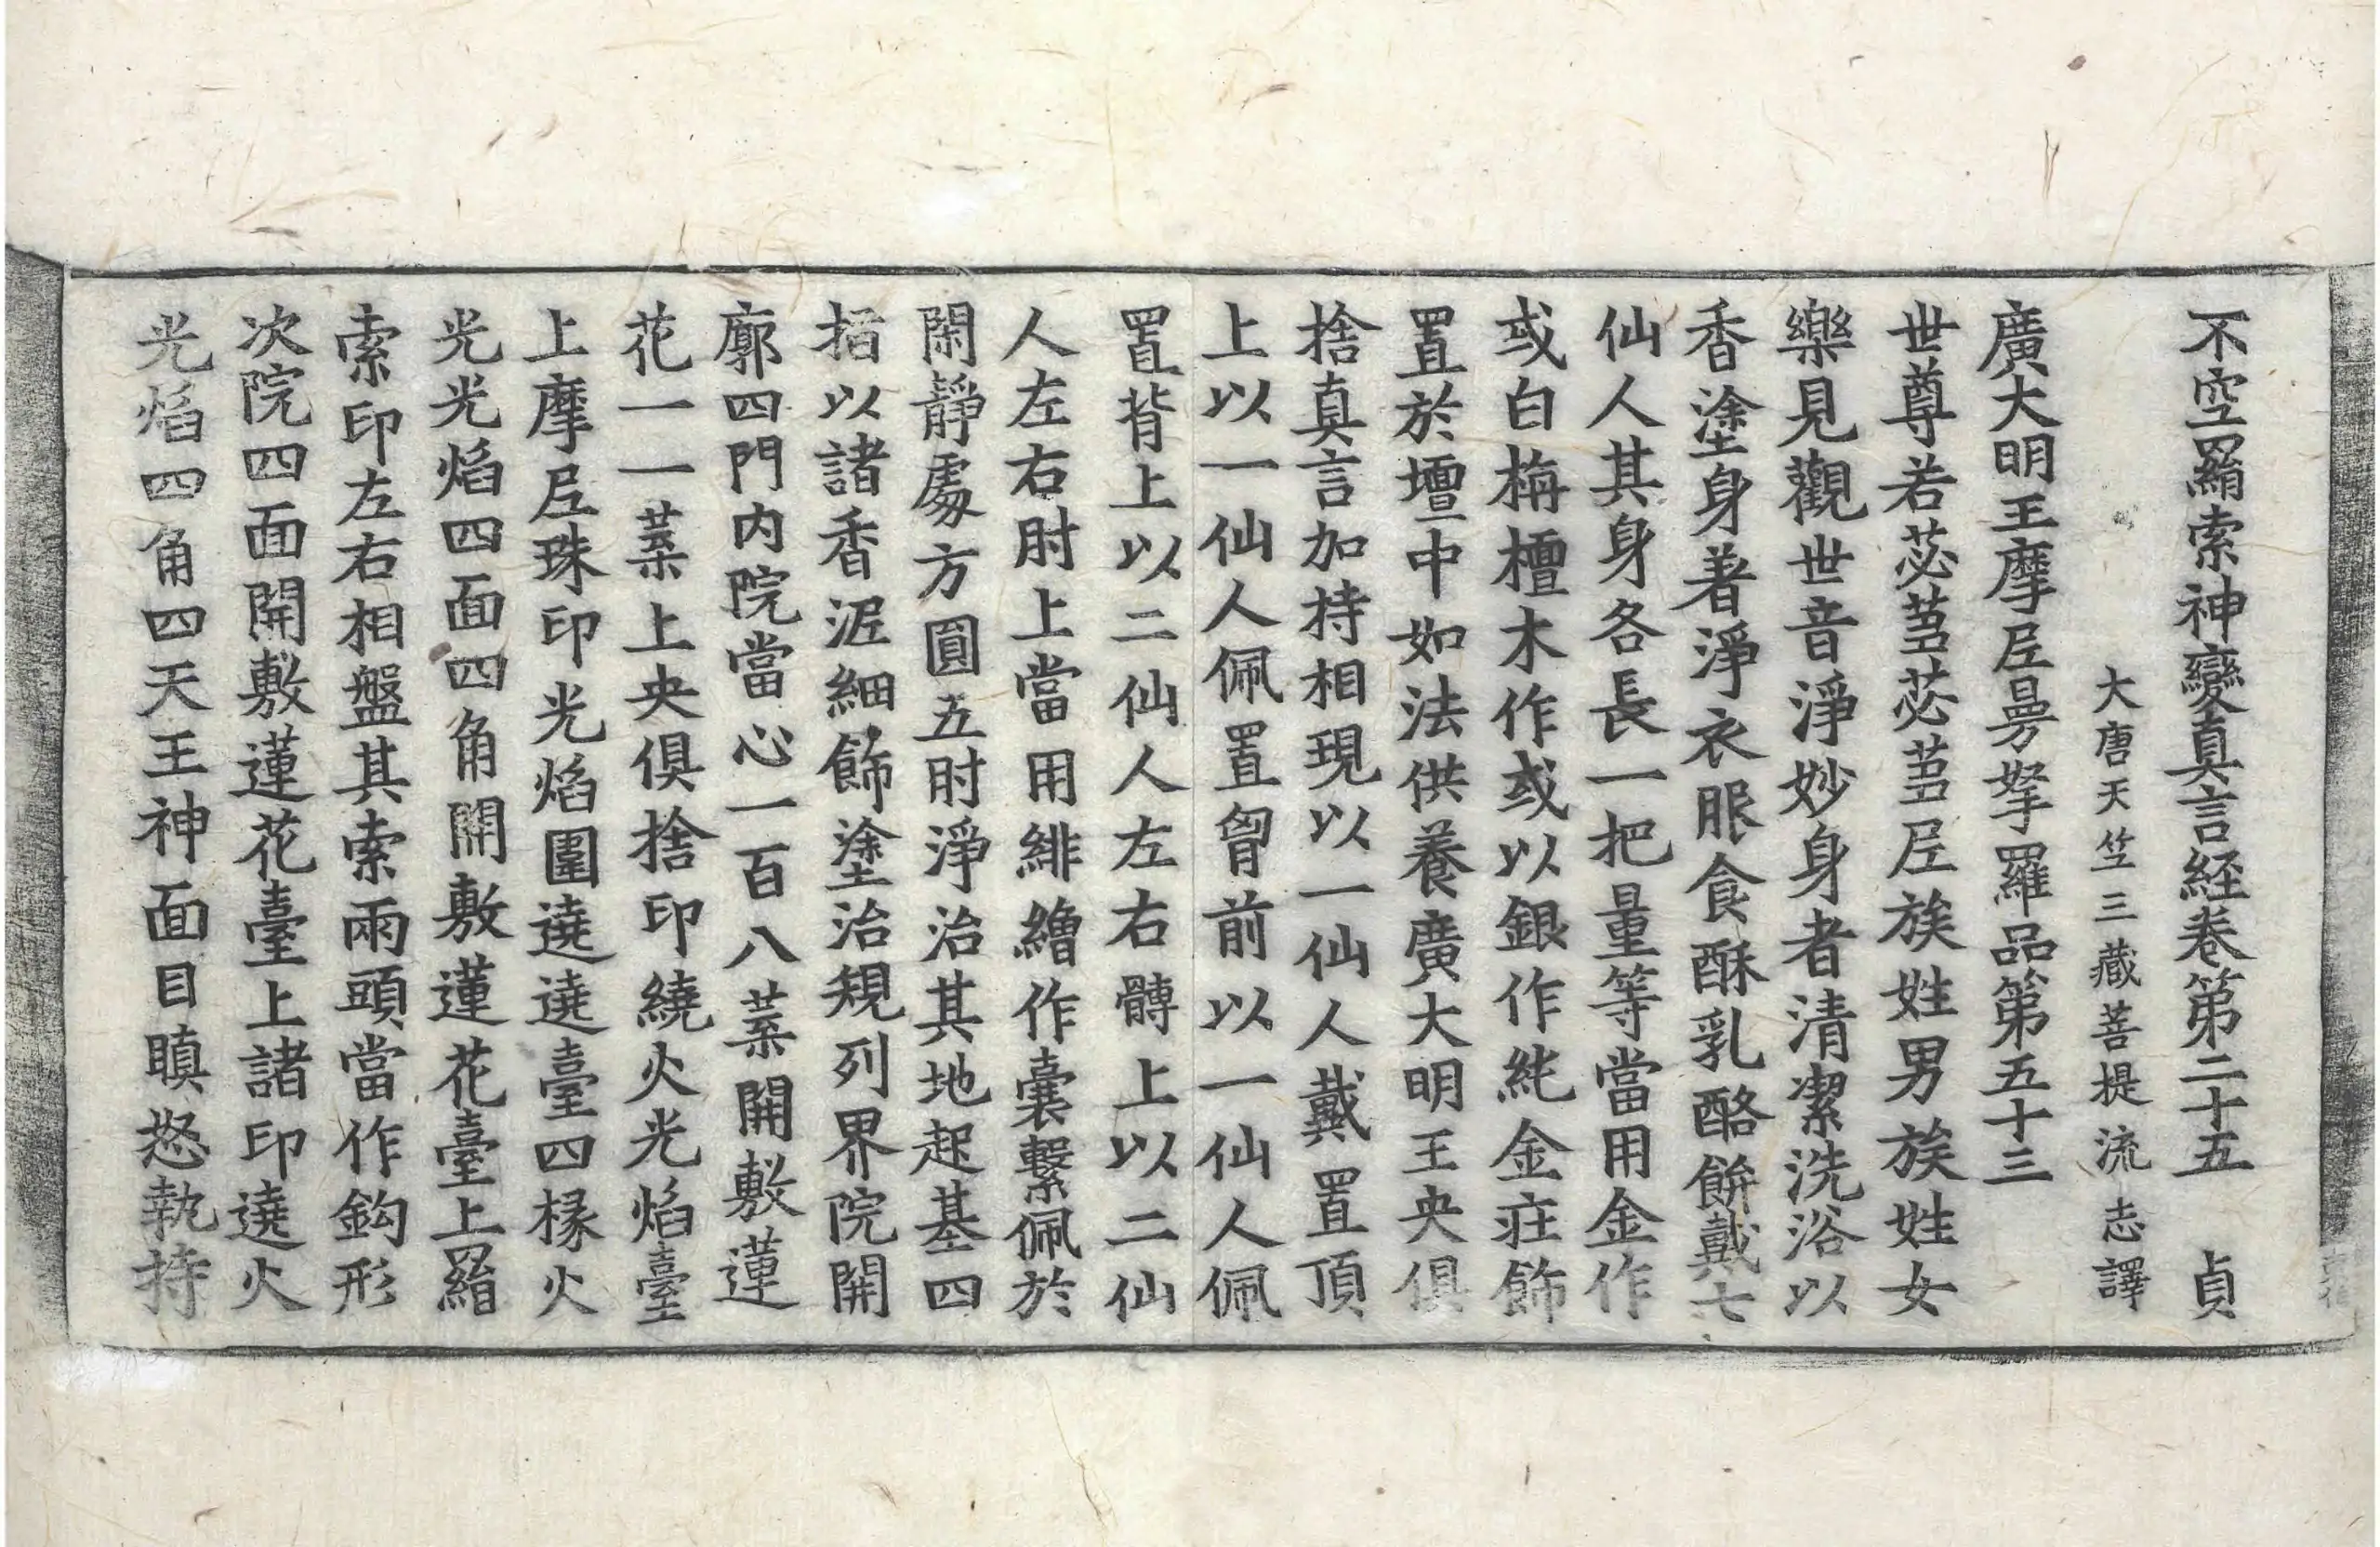 不空羂索神變真言經卷第二十五 貞
大唐天竺三藏菩提流志譯
廣大明王摩尼曼拏羅品第五十三
世尊若苾蒭苾蒭尼族姓男族姓女
樂見觀世音淨妙身者清潔洗浴以
香塗身著淨衣服食酥乳酪餅戴七
仙人其身各長一把量等當用金作
或白栴檀木作或以銀作純金莊飾
置於壇中如法供養廣大明王央俱
捨真言加持相現以一仙人戴置頂
上以一仙人佩置胷前以一仙人佩
置背上以二仙人左右髆上以二仙
人左右肘上當用緋繒作囊繫佩於
閑靜處方圓五肘淨治其地起基四
指以諸香泥細飾塗治規列界院開
廓四門內院當心一百八葉開敷蓮
花一一葉上央俱捨印繞火光焰臺
上摩尼珠印光焰圍遶遶臺四椽火
光光焰四面四角開敷蓮花臺上羂
索印左右相盤其索兩頭當作鈎形
次院四面開敷蓮花臺上諸印遶火
光焰四角四天王神面目瞋怒執持